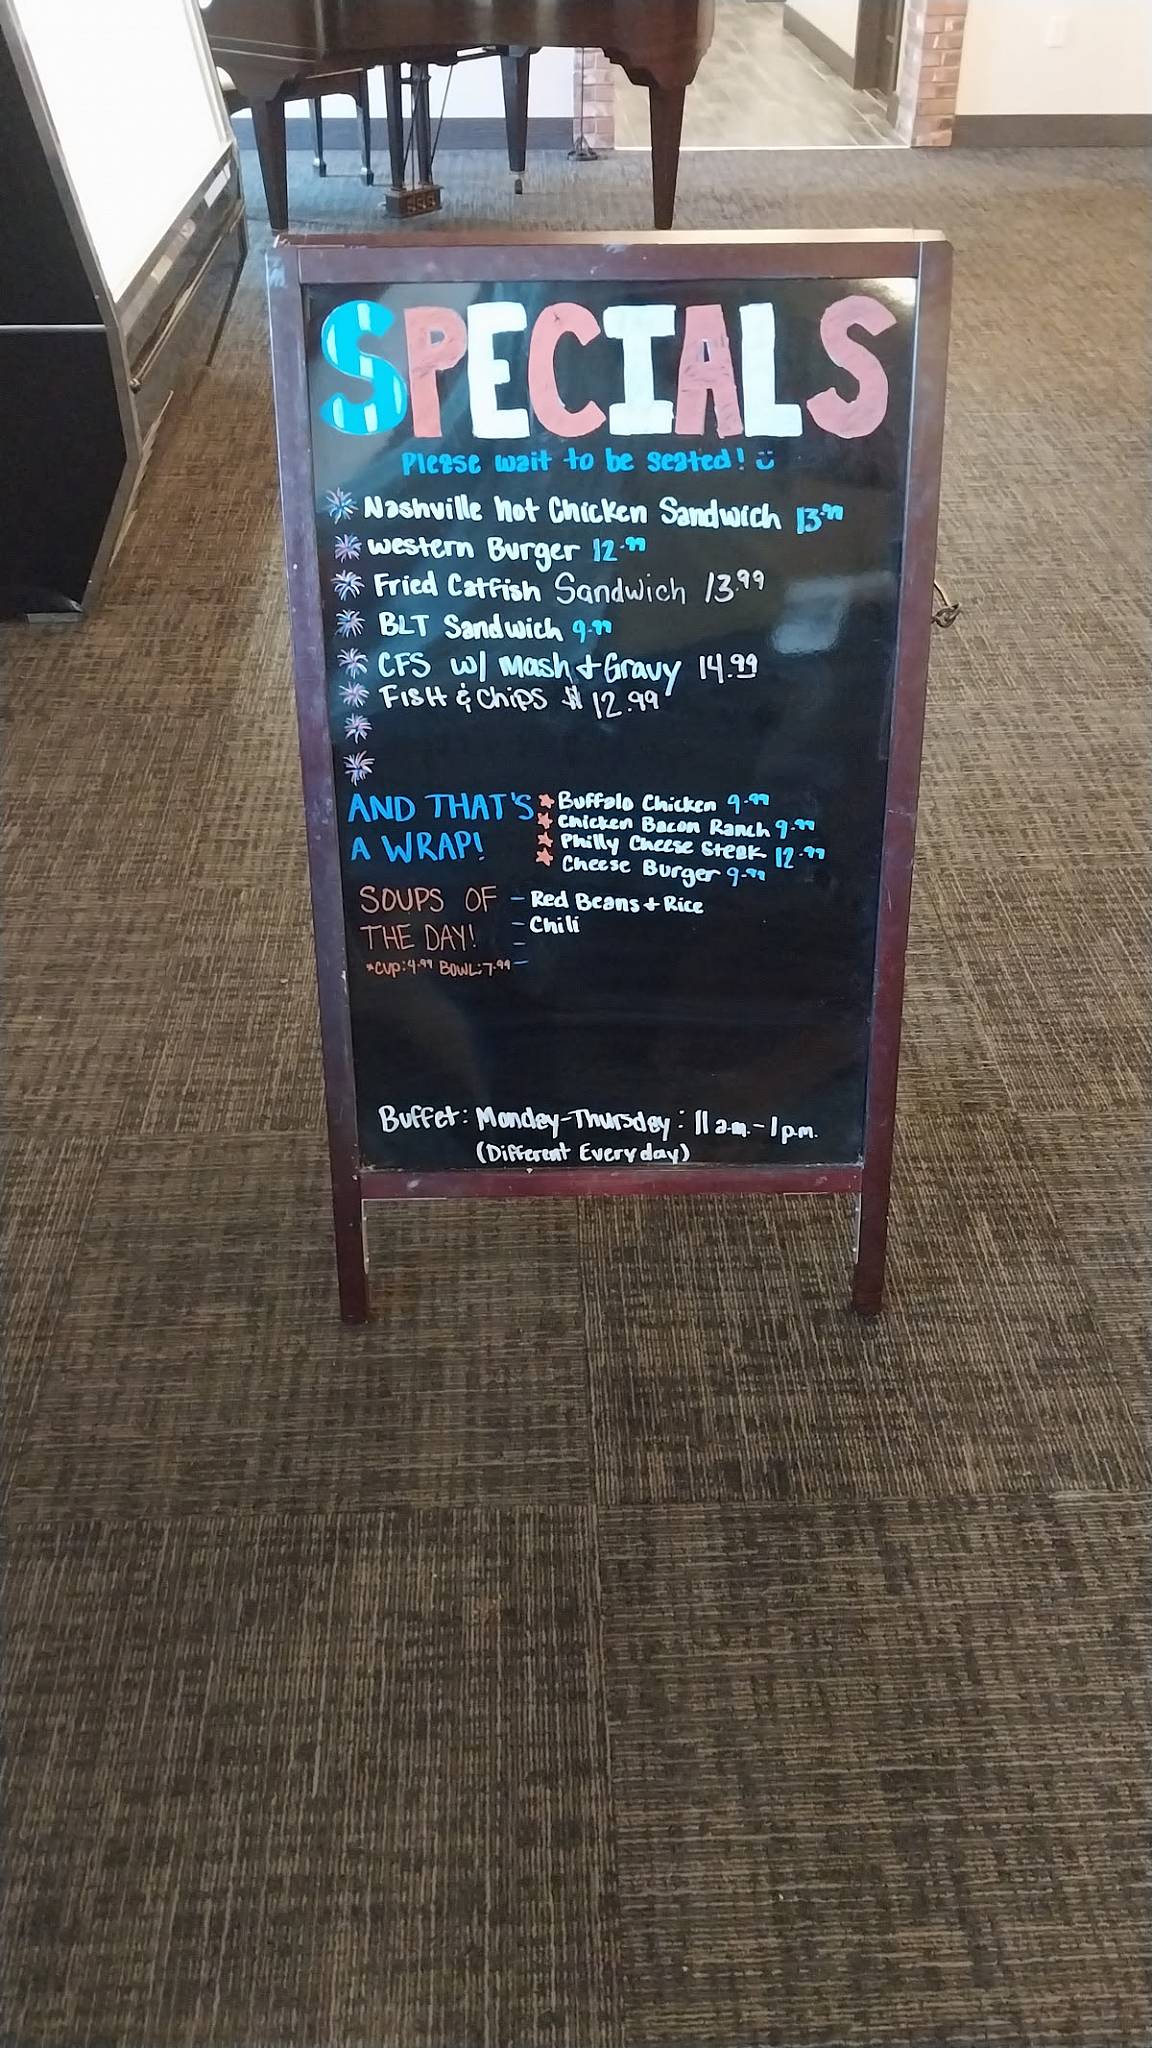 SPECIALS
Please wait to be seated!
Nashville hot Chicken Sandwich 13.99
western Burger 12.99
Fried Catfish Sandwich 13.99
BLT Sandwich 9.99
CFS w/ Mash + Gravy 14.99
FISH & ChiPS $ 12.99
AND THAT'S
A WRAP!
Buffalo Chicken 9.99
Chicken Bacon Ranch 9.99
Philly Cheese Steak 12.99
Cheese Burger 9.99
SOUPS OF
THE DAY!
*CUP: 4.99 BOWL: 7.99
- Red Beans + Rice
- Chili
-
-
Buffet: Monday-Thursday: 11 a.m. - 1 p.m.
(Different Everyday)